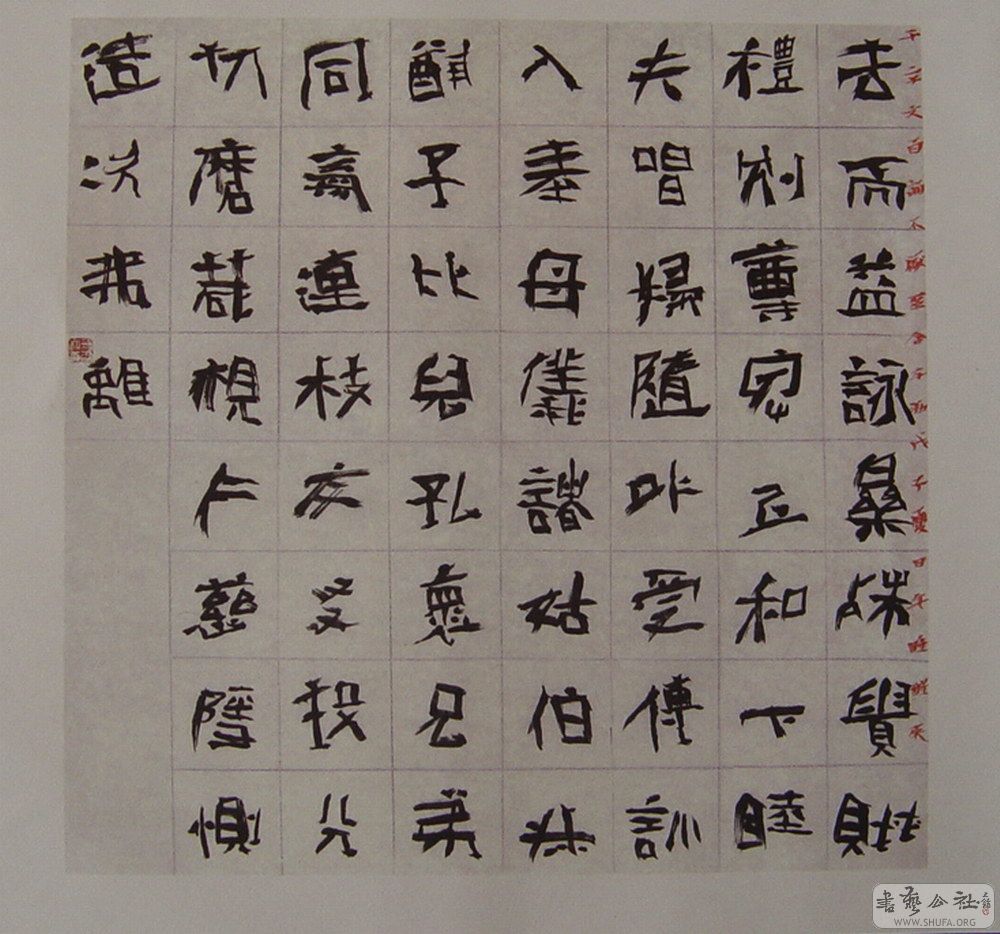 去而益詠樂殊貴賤
禮別尊卑上和下睦
夫唱婦隨外受傅訓
入奉母儀諸姑伯叔
猶子比兒孔懷兄弟
同氣連枝交友投分
切磨箴規仁慈隱惻
造次弗離
WWW.SHUFA.ORG